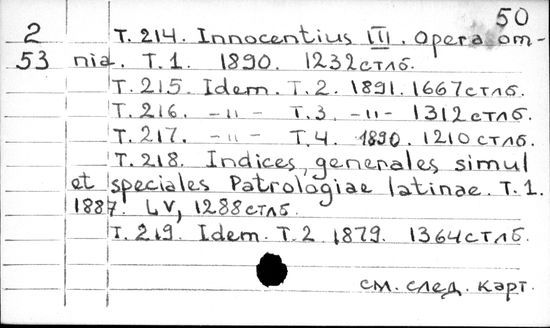 50
2 Т. 214. Innocentius III. Opera om-
53 nia. Т. 1. 1890. 1232 стлб.
Т. 215. Idem. Т. 2. 1891. 1667 стлб.
Т. 216. -〃- Т. 3. -〃- 1312 стлб.
Т. 217. -〃- Т. 4. 1890. 1210 стлб.
Т. 218. Indices generales simul
et speciales Patrologiae latinae. Т. 1.
1887. LV, 1288 стлб.
Т. 219. Idem. Т. 2. 1879. 1364 стлб.
см. след. карт.